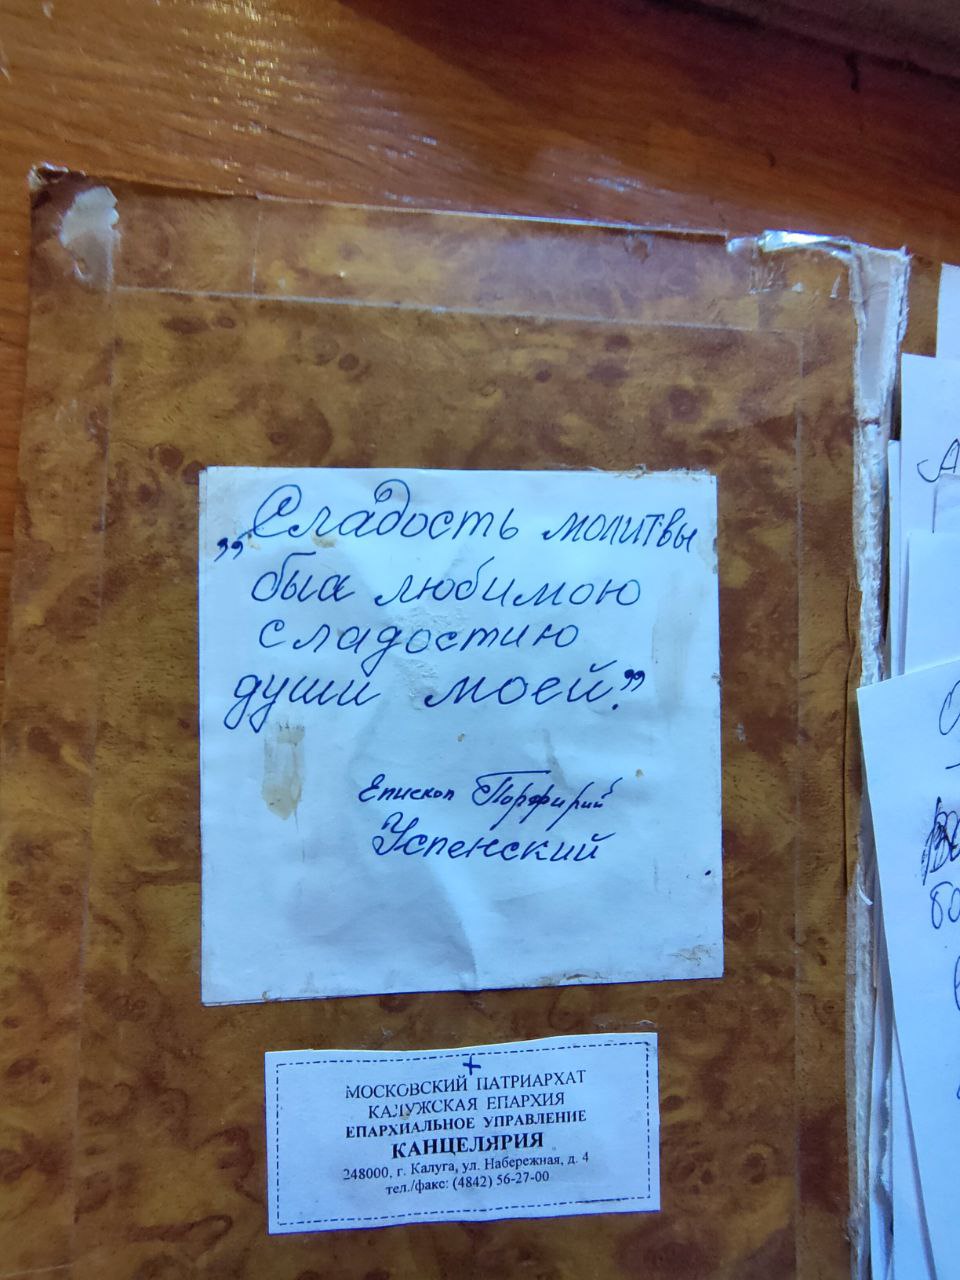 „Сладость молитвы
был любимою
сладостию
души моей."
Епископ Порфирий
Успенский
МОСКОВСКИЙ ПАТРИАРХАТ
КАЛУЖСКАЯ ЕПАРХИЯ
ЕПАРХИАЛЬНОЕ УПРАВЛЕНИЕ
КАНЦЕЛЯРИЯ
248000, г. Калуга, ул. Набережная, д. 4
тел./факс: (4842) 56-27-00